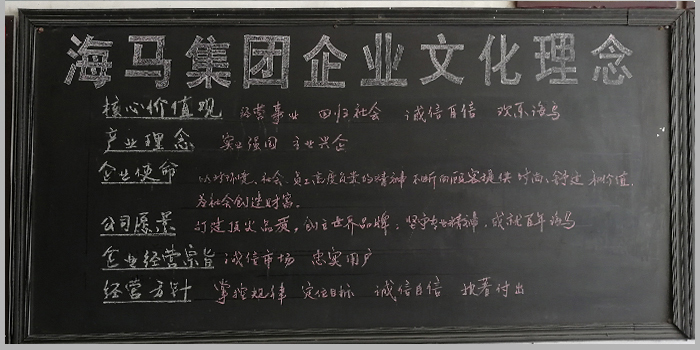 海马集团企业文化理念
核心价值观 经营事业 回归社会 诚信自信 欢乐海马
产业理念 实业强国 主业兴企
企业使命 以对环境、社会、员工高度负责的精神 不断向顾客提供 时尚、舒适 和价值,
为社会创造财富。
公司愿景 打造顶尖品质,创立世界品牌,坚守专业精神,成就百年海马
企业经营宗旨 诚信市场 忠实用户
经营方针 掌控规律 定位目标 诚信自信 执着付出